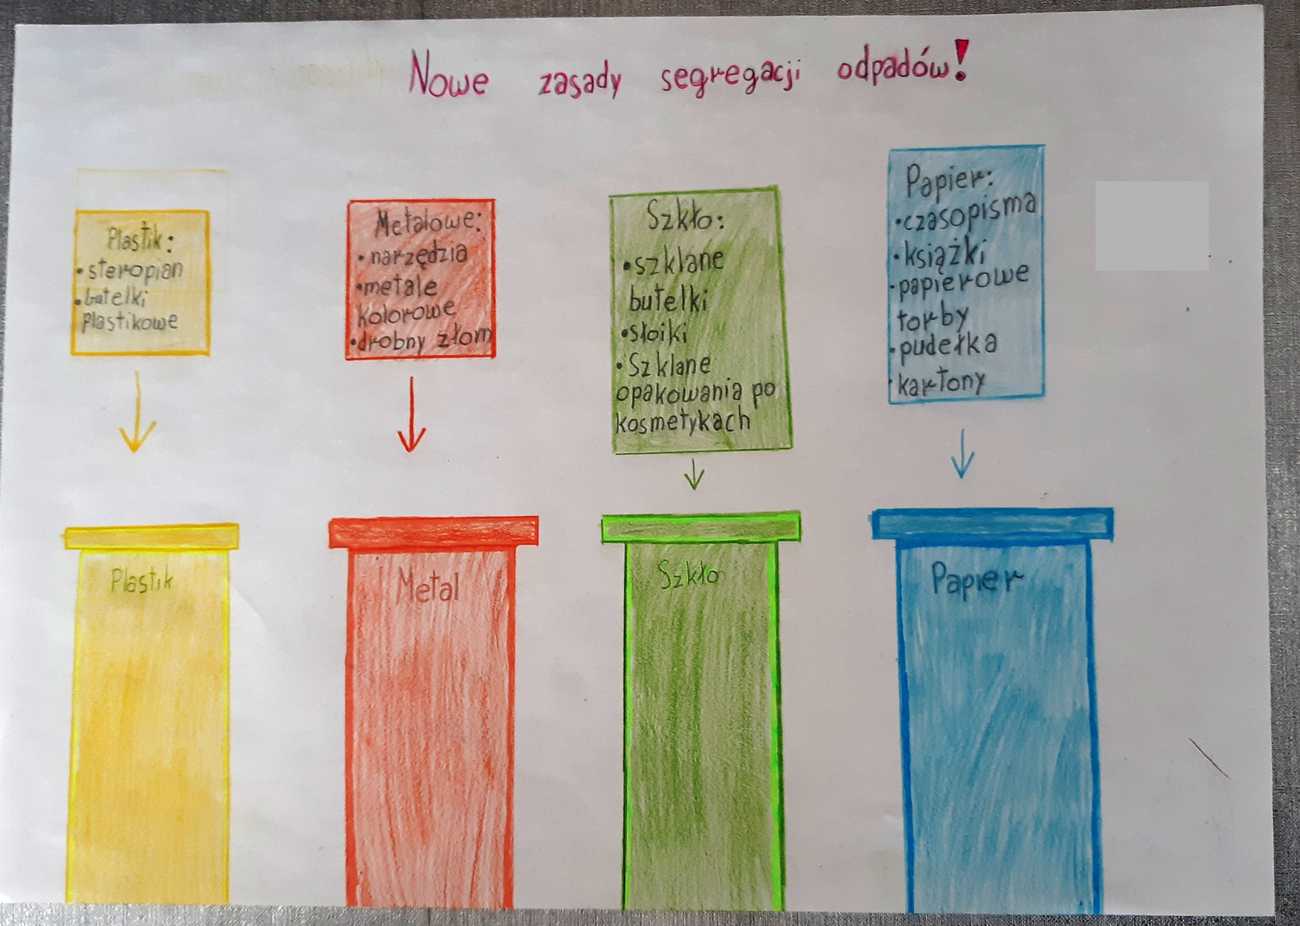 Nowe zasady segregacji odpadów!
Plastik:
• steropian
• butelki
plastikowe
Metalowe:
• narzędzia
• metale
kolorowe
• drobny złom
Szkło:
• szklane
butelki
• słoiki
• Szklane
opakowania po
kosmetykach
Papier:
• czasopisma
• książki
• papierowe
torby
• pudełka
• kartony
Plastik
Metal
Szkło
Papier